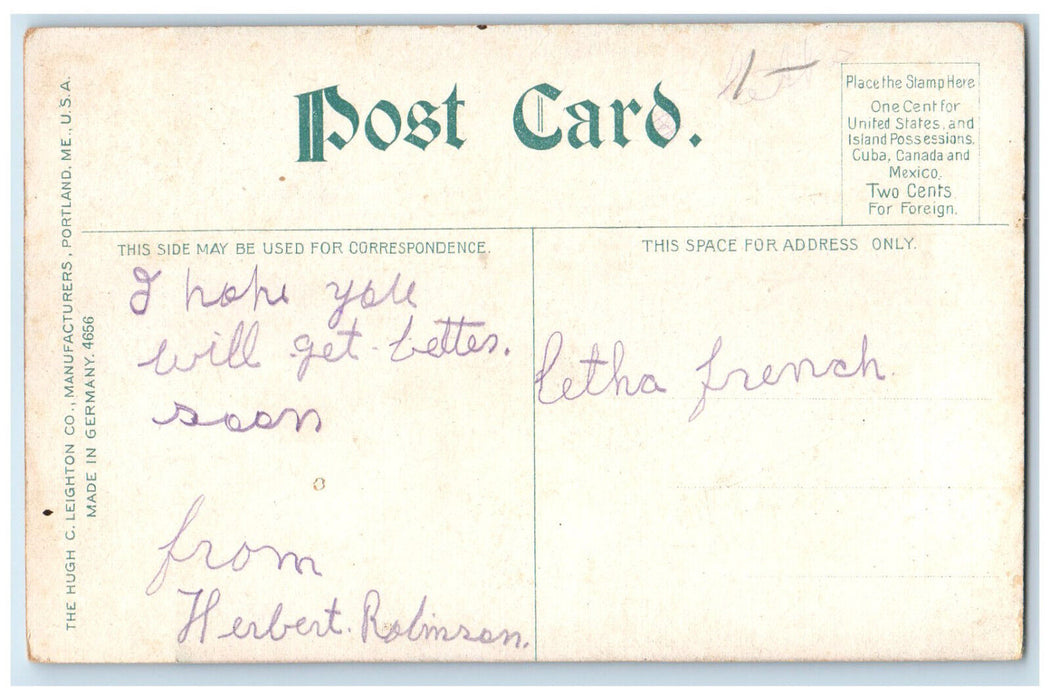 Post Card.
Place the Stamp Here
One Cent for
United States, and
Island Possessions.
Cuba, Canada and
Mexico.
Two Cents
For Foreign.
THIS SIDE MAY BE USED FOR CORRESPONDENCE.
THIS SPACE FOR ADDRESS ONLY.
I hope you
will get better.
soon
from
Herbert. Robinson.
letha french
THE HUGH C. LEIGHTON CO., MANUFACTURERS, PORTLAND, ME., U.S.A.
MADE IN GERMANY. 4656